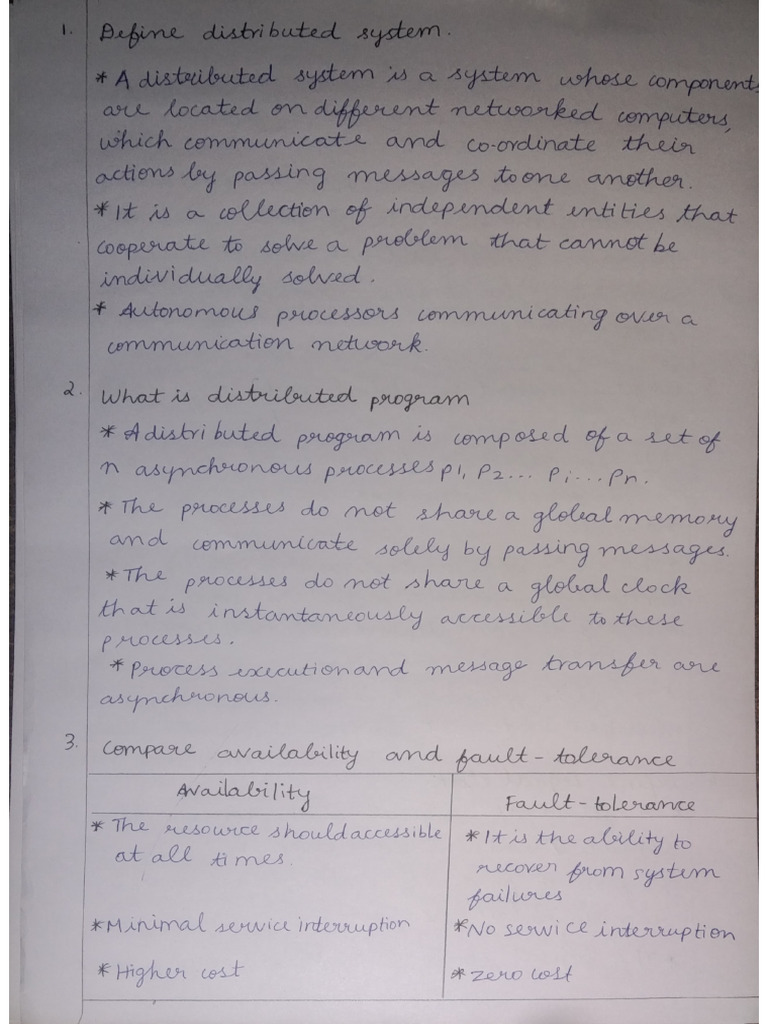 1. Define distributed system.
* A distributed system is a system whose components
are located on different networked computers,
which communicate and co-ordinate their
actions by passing messages to one another.
* It is a collection of independent entities that
cooperate to solve a problem that cannot be
individually solved.
* Autonomous processors communicating over a
communication network.
2. What is distributed program
* A distributed program is composed of a set of
n asynchronous processes p1, p2... pi... pn.
* The processes do not share a global memory
and communicate solely by passing messages.
* The processes do not share a global clock
that is instantaneously accessible to these
processes.
* Process execution and message transfer are
asynchronous.
3. Compare availability and fault-tolerance
Availability
Fault-tolerance
* The resource should accessible
at all times.
* It is the ability to
recover from system
failures
* Minimal service interruption
* No service interruption
* Higher cost
* Zero cost